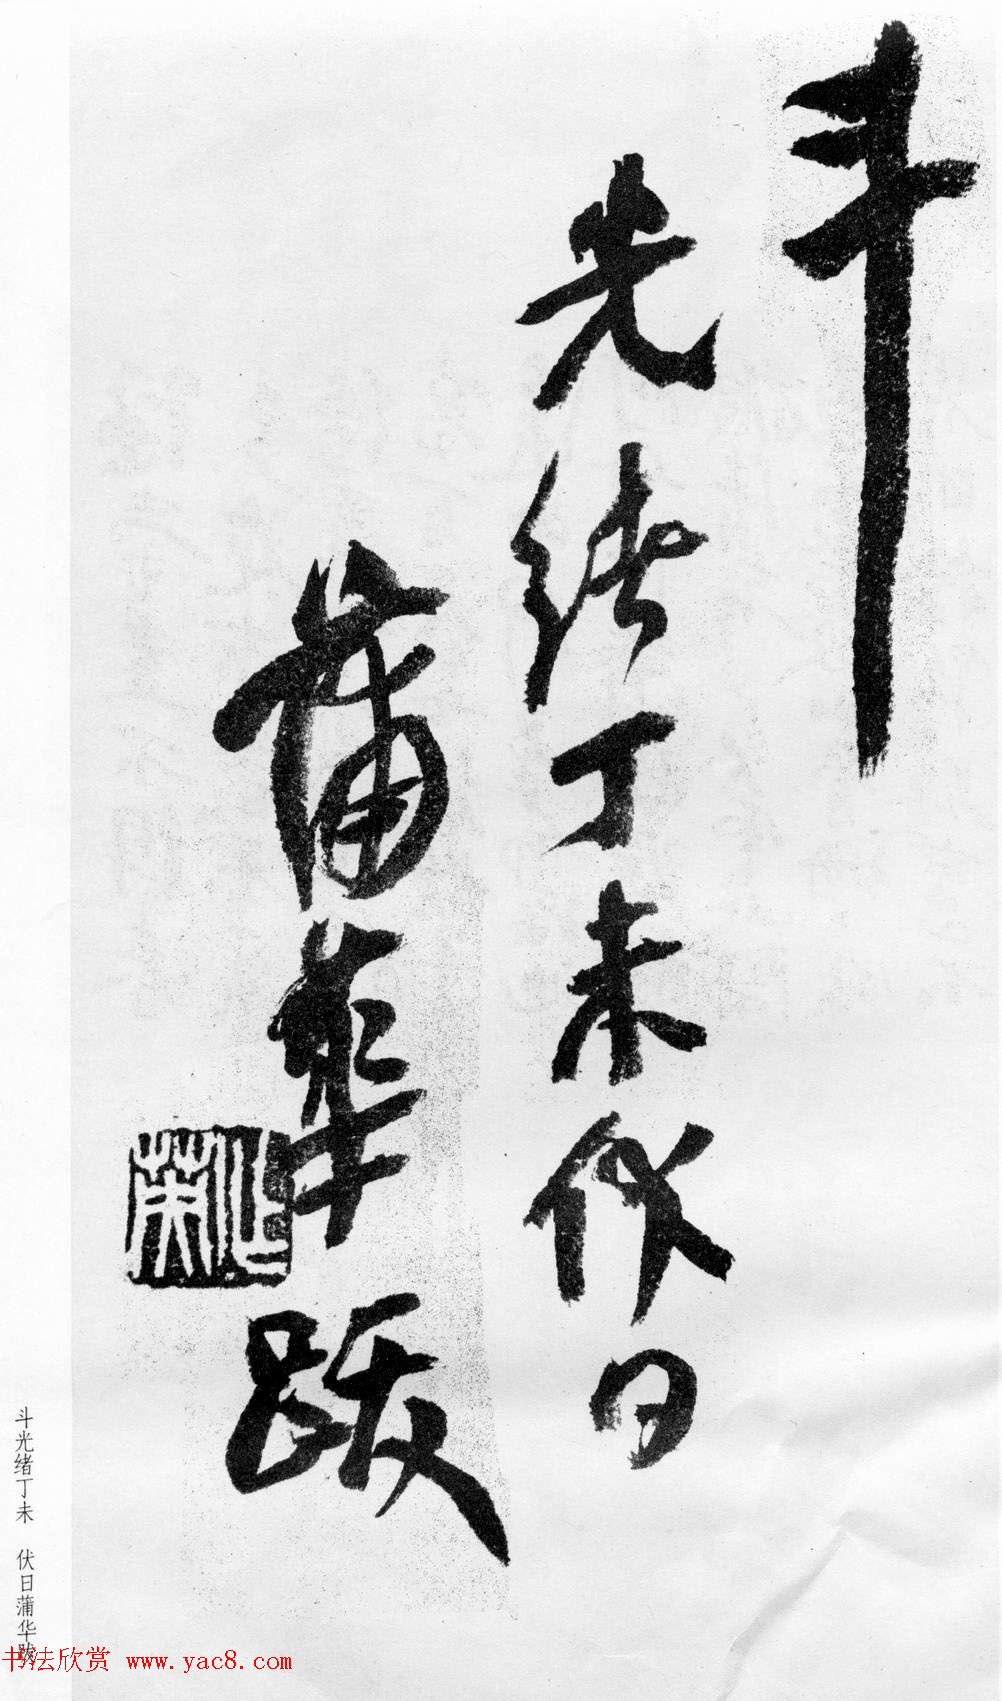 斗
光緒丁未伏日
蒲華跋
作英
斗光绪丁未　伏日蒲华跋
书法欣赏 www.yac8.com